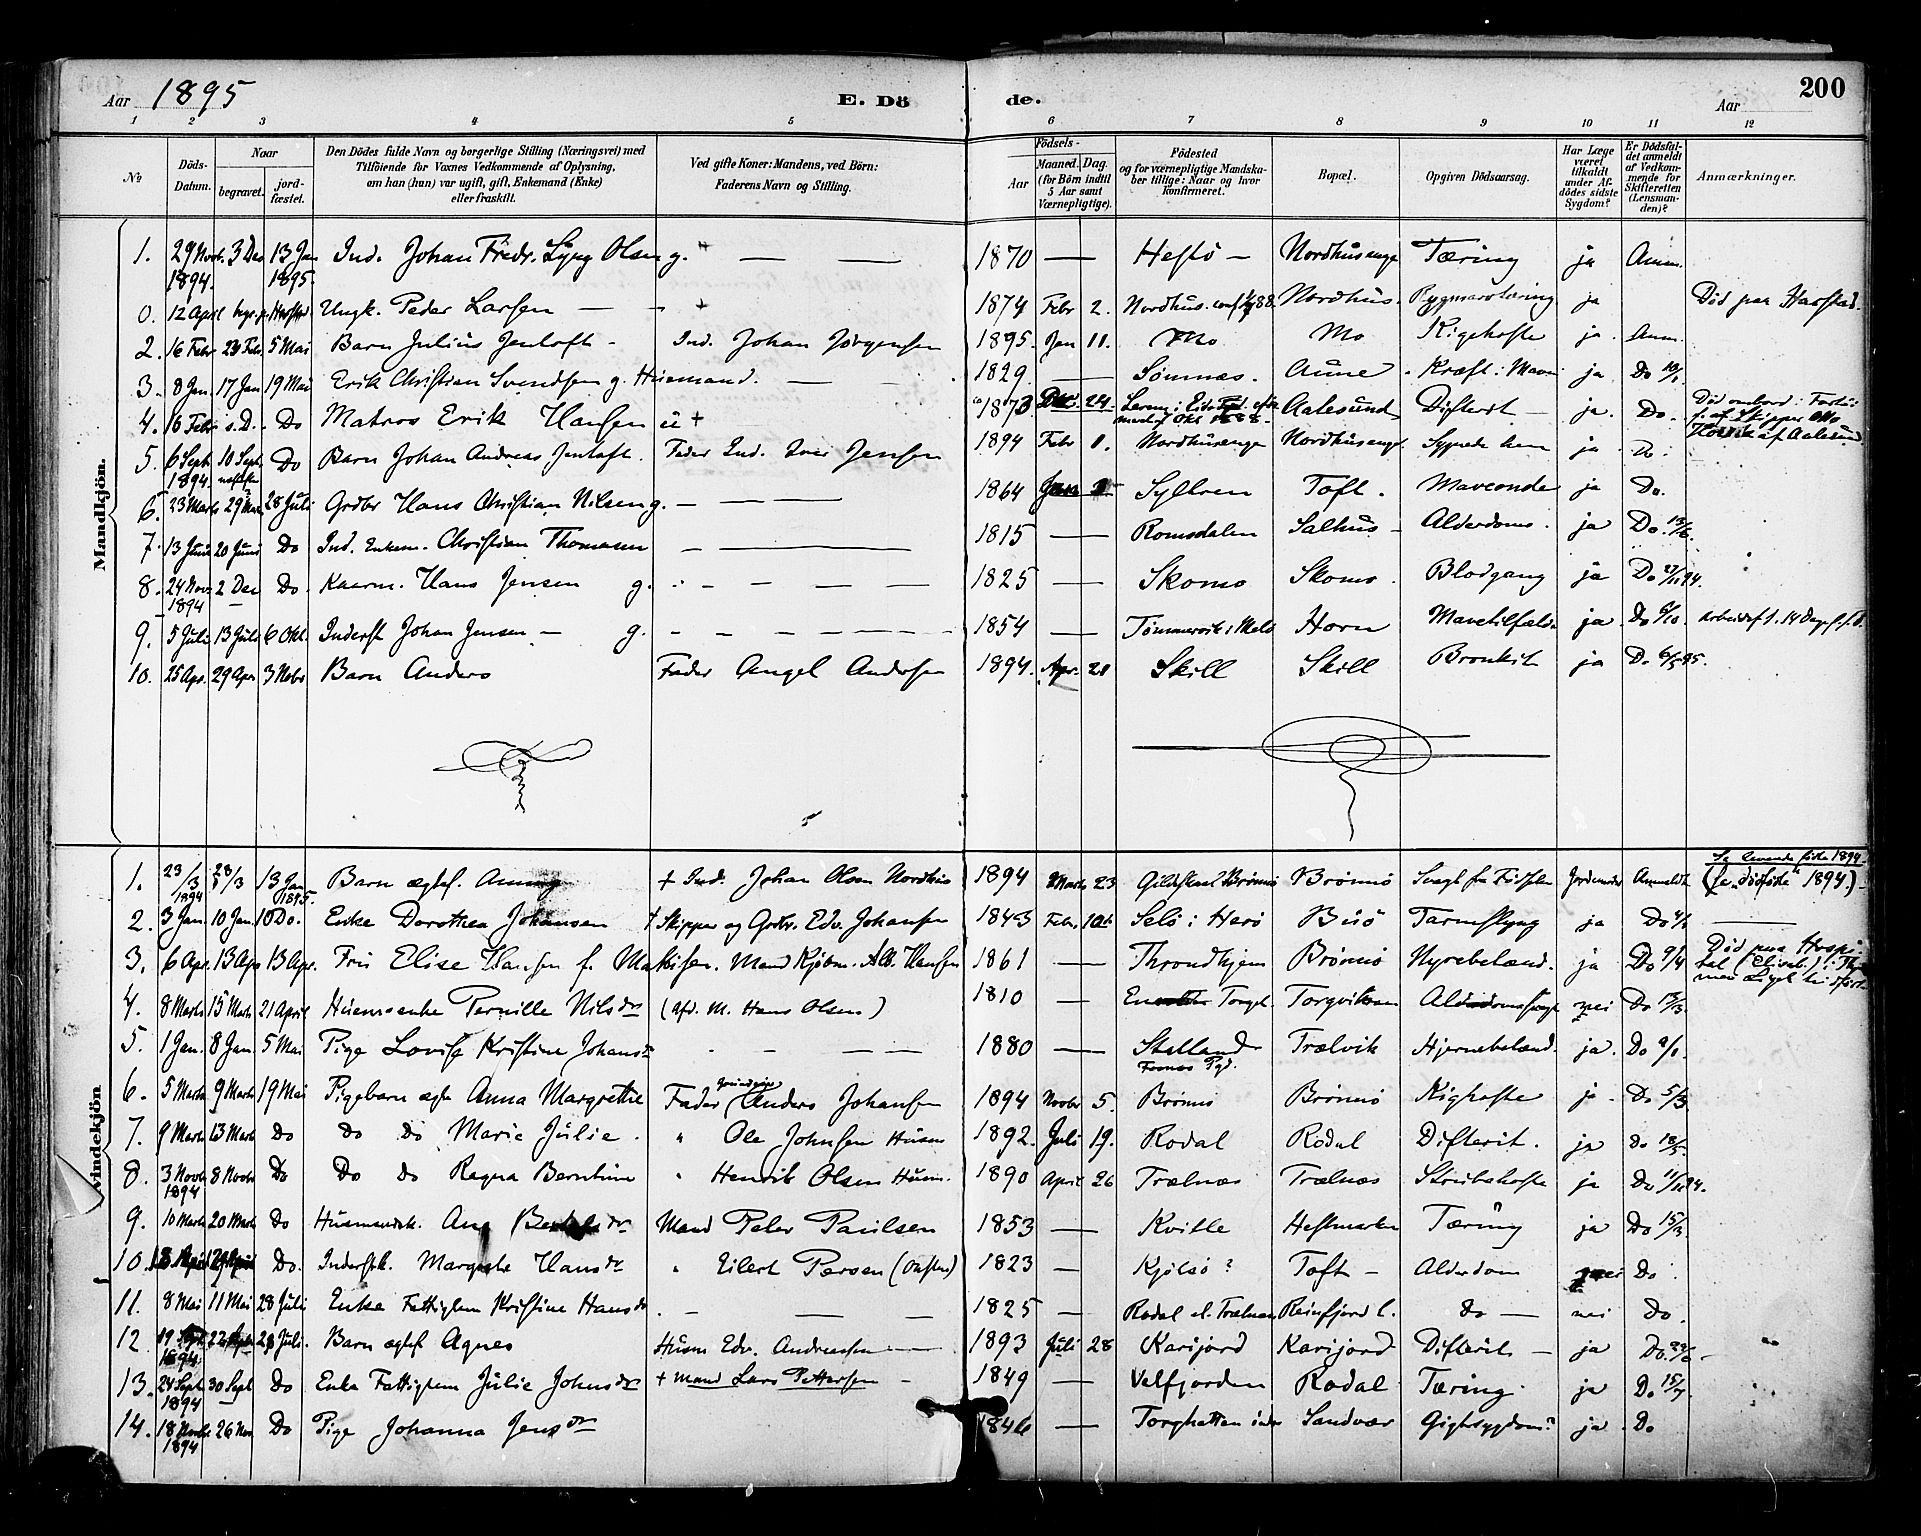 Aar 1895 E. Döde. Aar 200
1 2 3 4 5 6 7 8 9 10 11 12
No
Döds-Datum.
Naar
begravet.
jord-fæstet.
Den Dödes fulde Navn og borgerlige Stilling (Næringsvei) med
Tilföiende for Voxnes Vedkommende af Oplysning,
om han (hun) var ugift, gift, Enkemand (Enke)
eller fraskilt.
Ved gifte Koner: Mandens, ved Börn:
Faderens Navn og Stilling.
Födsels-
Aar
Maaned. Dag.
(for Börn indtil
5 Aar samt
Værnepligtige).
Födested
og for værnepligtige Mandska-
ber tillige: Naar og hvor
konfirmeret.
Bopæl.
Opgiven Dödsaarsag.
Har Læge
været
tilkaldt
under Af-
dödes sidste
Sygdom?
Er Dödsfal-
det anmeldt
af Vedkom-
mende for
Skifteretten
(Lensman-
den)?
Anmærkninger.
Mandkjön.
1. 29 Novb. 1894. 3 Dec 13 Jan 1895. Ind. Johan Fredr. Lyng Olsen g. — — 1870 — Hestø — Nordhusange Tæring ja Anm.
0. 12 April Ungk. Peder Larsen — 1874 Febr 2. Nordhus. Nordhus. Rygmarvstæring ja Död paa Harstad.
2. 16 Febr 23 Feb. 5 Mai Barn Julius Jentoft - Ind. Johan Jörgensen 1895. Jan 11. Mo Mo Kighoste ja. Anm.
3. 8 Jan. 17 Jan 19 Mai Erik Christian Svendsen g. Husmand. — 1829. — Sömnæs. Aune. Kræft i Maven ja Do
4. 16 Febr s.D. Do Matros Erik Hansen u + 1873 Dec. 24 Aalesund Difterit — ja. Do. Död ombord i
af Skipper Otto
af Aalesund
5. 6 Sept 1894. 10 Sept. Do Barn Johan Andreas Jentoft. Fader Ind. Iver Jensen 1894 Febr 1. Nordhusange Nordhusange. ja. Do.
6. 23 Marts 29 Mar. 28 Juli Grdbr Hans Christian Nilsen g. — — — 1864 Syltren Toft. Maveonde ja Do.
7. 13 Juni 20 Juni Do Ind. Enkem. Christian Thomassen — — 1815 — Romsdalen Salhus — Alderdoms. ja Do.
8. 24 Nov. 1894 2 Dec Do. Kaarm. Hans Jensen g. — — — 1825 — Skomo Skomo. Blodgang ja Do 27/11 94.
9. 5 Juli 13 Juli 6 Okt. Inderst Johan Jensen — g. — — — 1854 — Tömmervik i Horn Mavetilfælde ja. Do 6/10
10. 25 Apr. 29 Apr 3 Nobr Barn Anders Fader Angel Andersen 1894. Apr. 21 Skill Skill Bronkit ja Do 6/5 95.
Kvindekjön
1. 23/3 1894 28/3 13 Jan 1895. Barn ægtef. Anna + Ind. Johan Olsen Nordhus 1894 Marts 23 Brönnö Brönnö Svagt fra Födselen Jordemoder Anmeldt
Se levende födte 1894.
(se "dödfödte" 1894).
2. 3 Jan. 10 Jan. 10 Do. Enke Dorothea Johansen + Skipper og Grdbr. Edv. Johansen 1843 Febr. 10de Selö i Herö Buö Tarmslyng ja Do —
3. 6 Apr. 13 Apr 13 Apr. Fru Elise Hansen f. Mathisen. Mand Kjöbm. Alb. Hansen 1861 — Throndhjem Brönnö Nyrebetænd. ja Do 9/4 Död paa Hospi-
tal
men Liget
4. 8 Marts 15 Marts 21 April Husmsenke Pernille Nilsdr (Afd. M. Hans Olsen) 1810 — Torget. Torgviksan nei Do 15/3.
5. 1 Jan. 8 Jan. 5 Mai Pige Lovise Kristine Johansdr — — — 1880 — Stelland Trælvik Hjernebetænd. ja. Do
6. 5 Marts 9 Marts 19 Mai Pigebarn ægte Anna Margrethe Fader Anders Johansen 1894 Novbr 5. Brönnö Brönnö Kighoste ja. Do 5/3
7. 9 Marts 13 Marts Do Do Do Marie Julie. " Ole Johnsen Husm 1892. Juli 19. Rodal Rodal Difterit. ja Do
8. 3 Novb 1894 8 Novbr Do Do do Ragna Bernhine " Henrik Olsen Husm. 1890 April 26 Trælnæs Trælnæs Strubehoste ja Do 11/11 94.
9. 10 Marts 20 Marts Do Husmandsk. Ane Mand Peter Paulsen 1853 — Kville Hestmarken Tæring ja Do 15/3.
10. Do. Inderstk. Margrethe Hansdr " Eilert Persen 1823 — Kjölsö? Toft — Alderdom nei Do.
11. 8 Mai 11 Mai 28 Juli Enke Fattiglem Kristine Hansdr — — 1825 — Rodal el. Trælnæs Reinfjord l. Do — nei Do.
12. 1894. 28 Juli. Barn ægtef Agnes Husm Edv. Andreassen — 1893 Juli 28 Karijord Karijord Difterit — ja Do.
13. 24 Sept. 1894 30 Sept Do Enke Fattiglem Julie Johnsdr + Mand Lars Pettersen — 1849 — Velfjorden Rodal Tæring. ja Do
14. 18 Novbr 1894 26 Nov. Do Pige Johanna Jensdr 1846 — Torghatten Sandvær Gigtsygdom? ja. Do